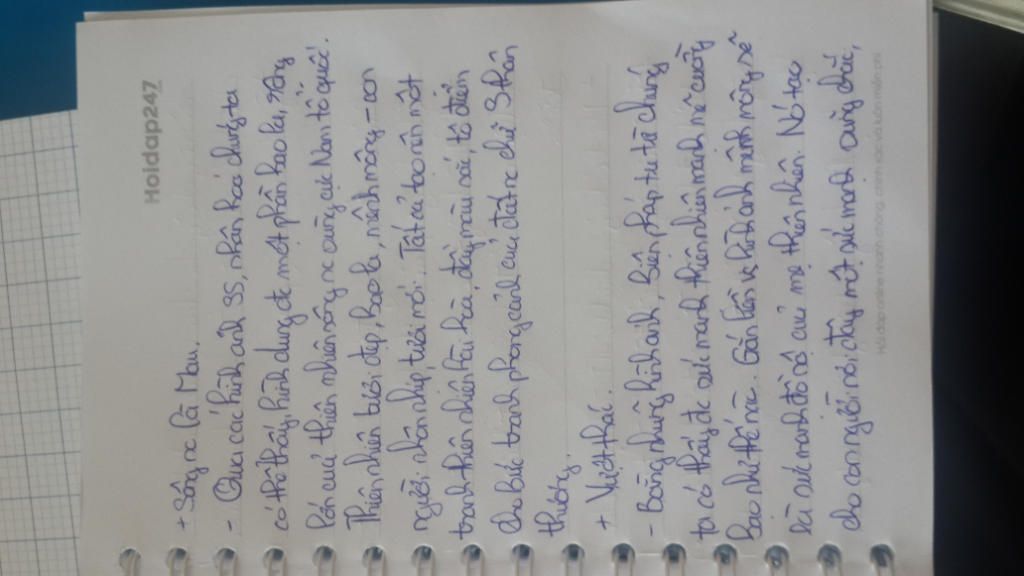 Hoidap247
+ Sông nc Cà Mau.
- Qua các hình ảnh SS, nhân hoá chúng ta
có thể thấy, hình dung đc một phần bao la, rộng
lớn của thiên nhiên sông nc cường cực Nam tổ quốc.
Thiên nhiên tươi đẹp, bao la, mênh mông - con
người nhộn nhịp, tươi mới. Tất cả tạo nên một
tranh thiên nhiên hài hoà, đầy màu sắc, tô điểm
cho bức tranh phong cảnh của đất nc chữ S thân
thương.
+ Vượt thác.
- Bằng những hình ảnh, biện pháp tu từ chúng
ta có thấy đc sức mạnh thiên nhiên mạnh mẽ cường
bạo như thế nào. Gắn liền vs hình ảnh mênh mông sẽ
là sức mạnh đồ sộ của mẹ thiên nhiên. Nó tạo
cho con người nơi đây một sức mạnh vững chắc,
Hỏi đáp online nhanh chóng, chính xác và luôn miễn phí